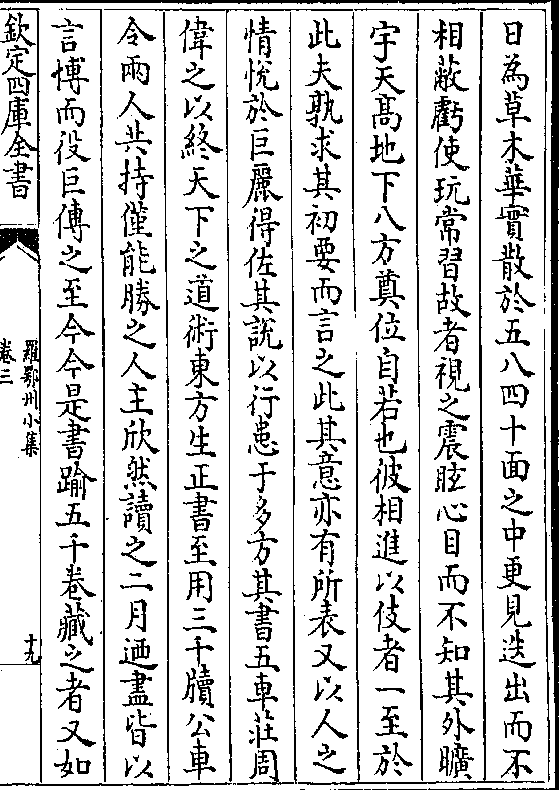 日為草木華實散於五八四十面之中更見迭出而不
相蔽虧使玩常習故者視之震眩心目而不知其外曠
宇天髙地下八方奠位自若也彼相進以伎者一至於
此夫孰求其初要而言之此其意亦有所表又以人之
情恱於巨麗得佐其說以行惠于多方其書五車莊周
偉之以終天下之道術東方生正書至用三千牘公車
令兩人共持僅能勝之人主欣然讀之二月廼盡皆以
言博而役巨傳之至今今是書踰五千卷藏之者又如
欽定四庫全書
羅鄂州小集
卷三
十九